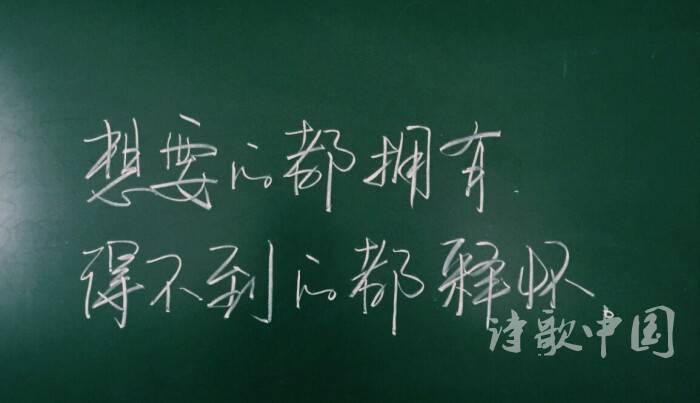 想要的都拥有.
得不到的都释怀。
诗歌中国